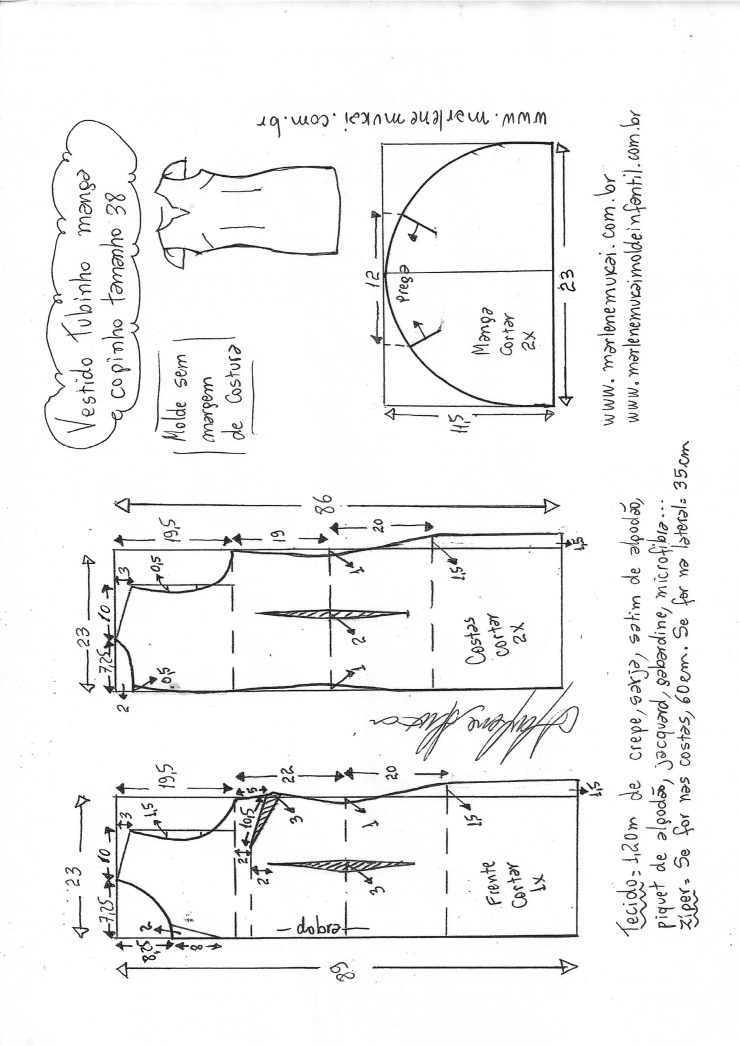 Vestido Tubinho manga
copinho tamanho 38
Molde sem
margem
de Costura
www.marlenemukai.com.br
11,5
12
Prega
Manga
Cortar
2x
23
www.marlenemukai.com.br
www.marlenemukaimoldeinfantil.com.br
23
7,25
10
3
2
0,5
0,5
19,5
19
20
86
1
2
1
1,5
1,5
Costas
Cortar
2x
23
7,25
10
3
1,5
8,25
2
8
19,5
22
20
5
10,5
2
2
3
3
1
1,5
1,5
89
dobra
Frente
Cortar
1x
Tecido = 1,20m de crepe, sarja, satim de algodão,
piquet de algodão, jacquard, gabardine, microfibra...
Zíper = Se for nas costas, 60cm. Se for na lateral = 35cm